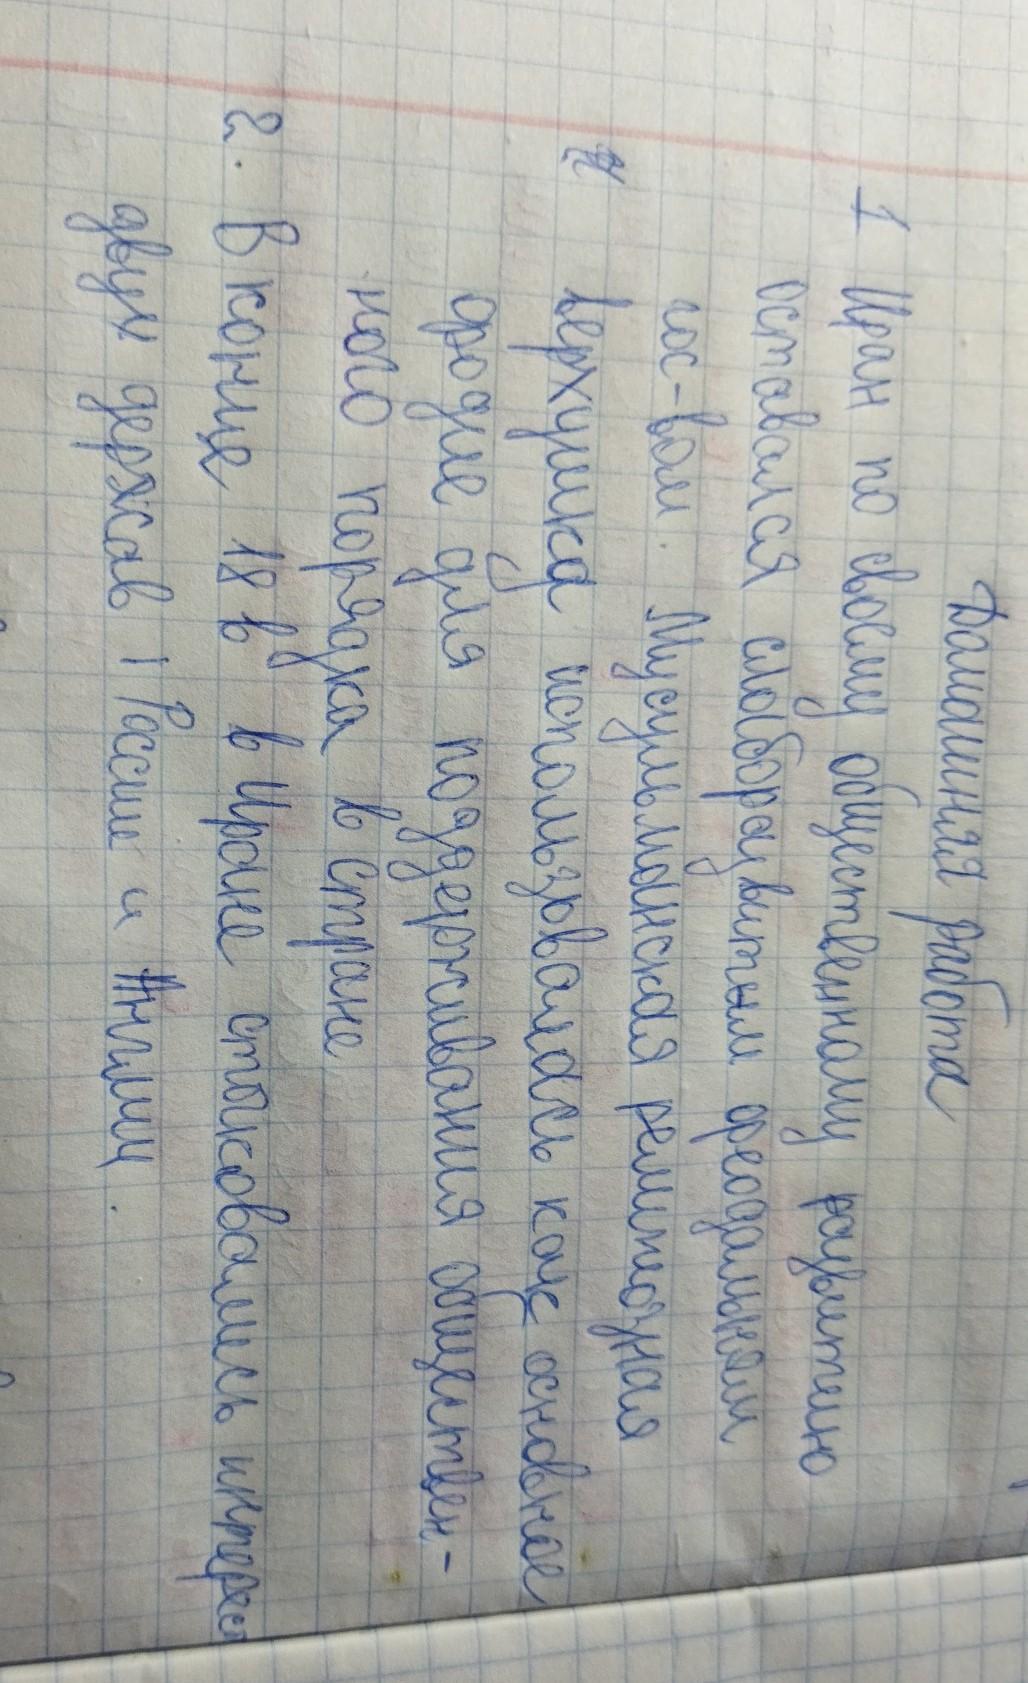 Домашняя работа
1 Иран по своему общественному развитию
оставался слаборазвитым феодальным
гос-вом. Мусульманская религиозная
верхушка использовалась как основное
орудие для поддерживания обществен-
ного порядка в стране
2. В конце 18 в в Иране стыковались интерес
двух держав 1 России и Англии.